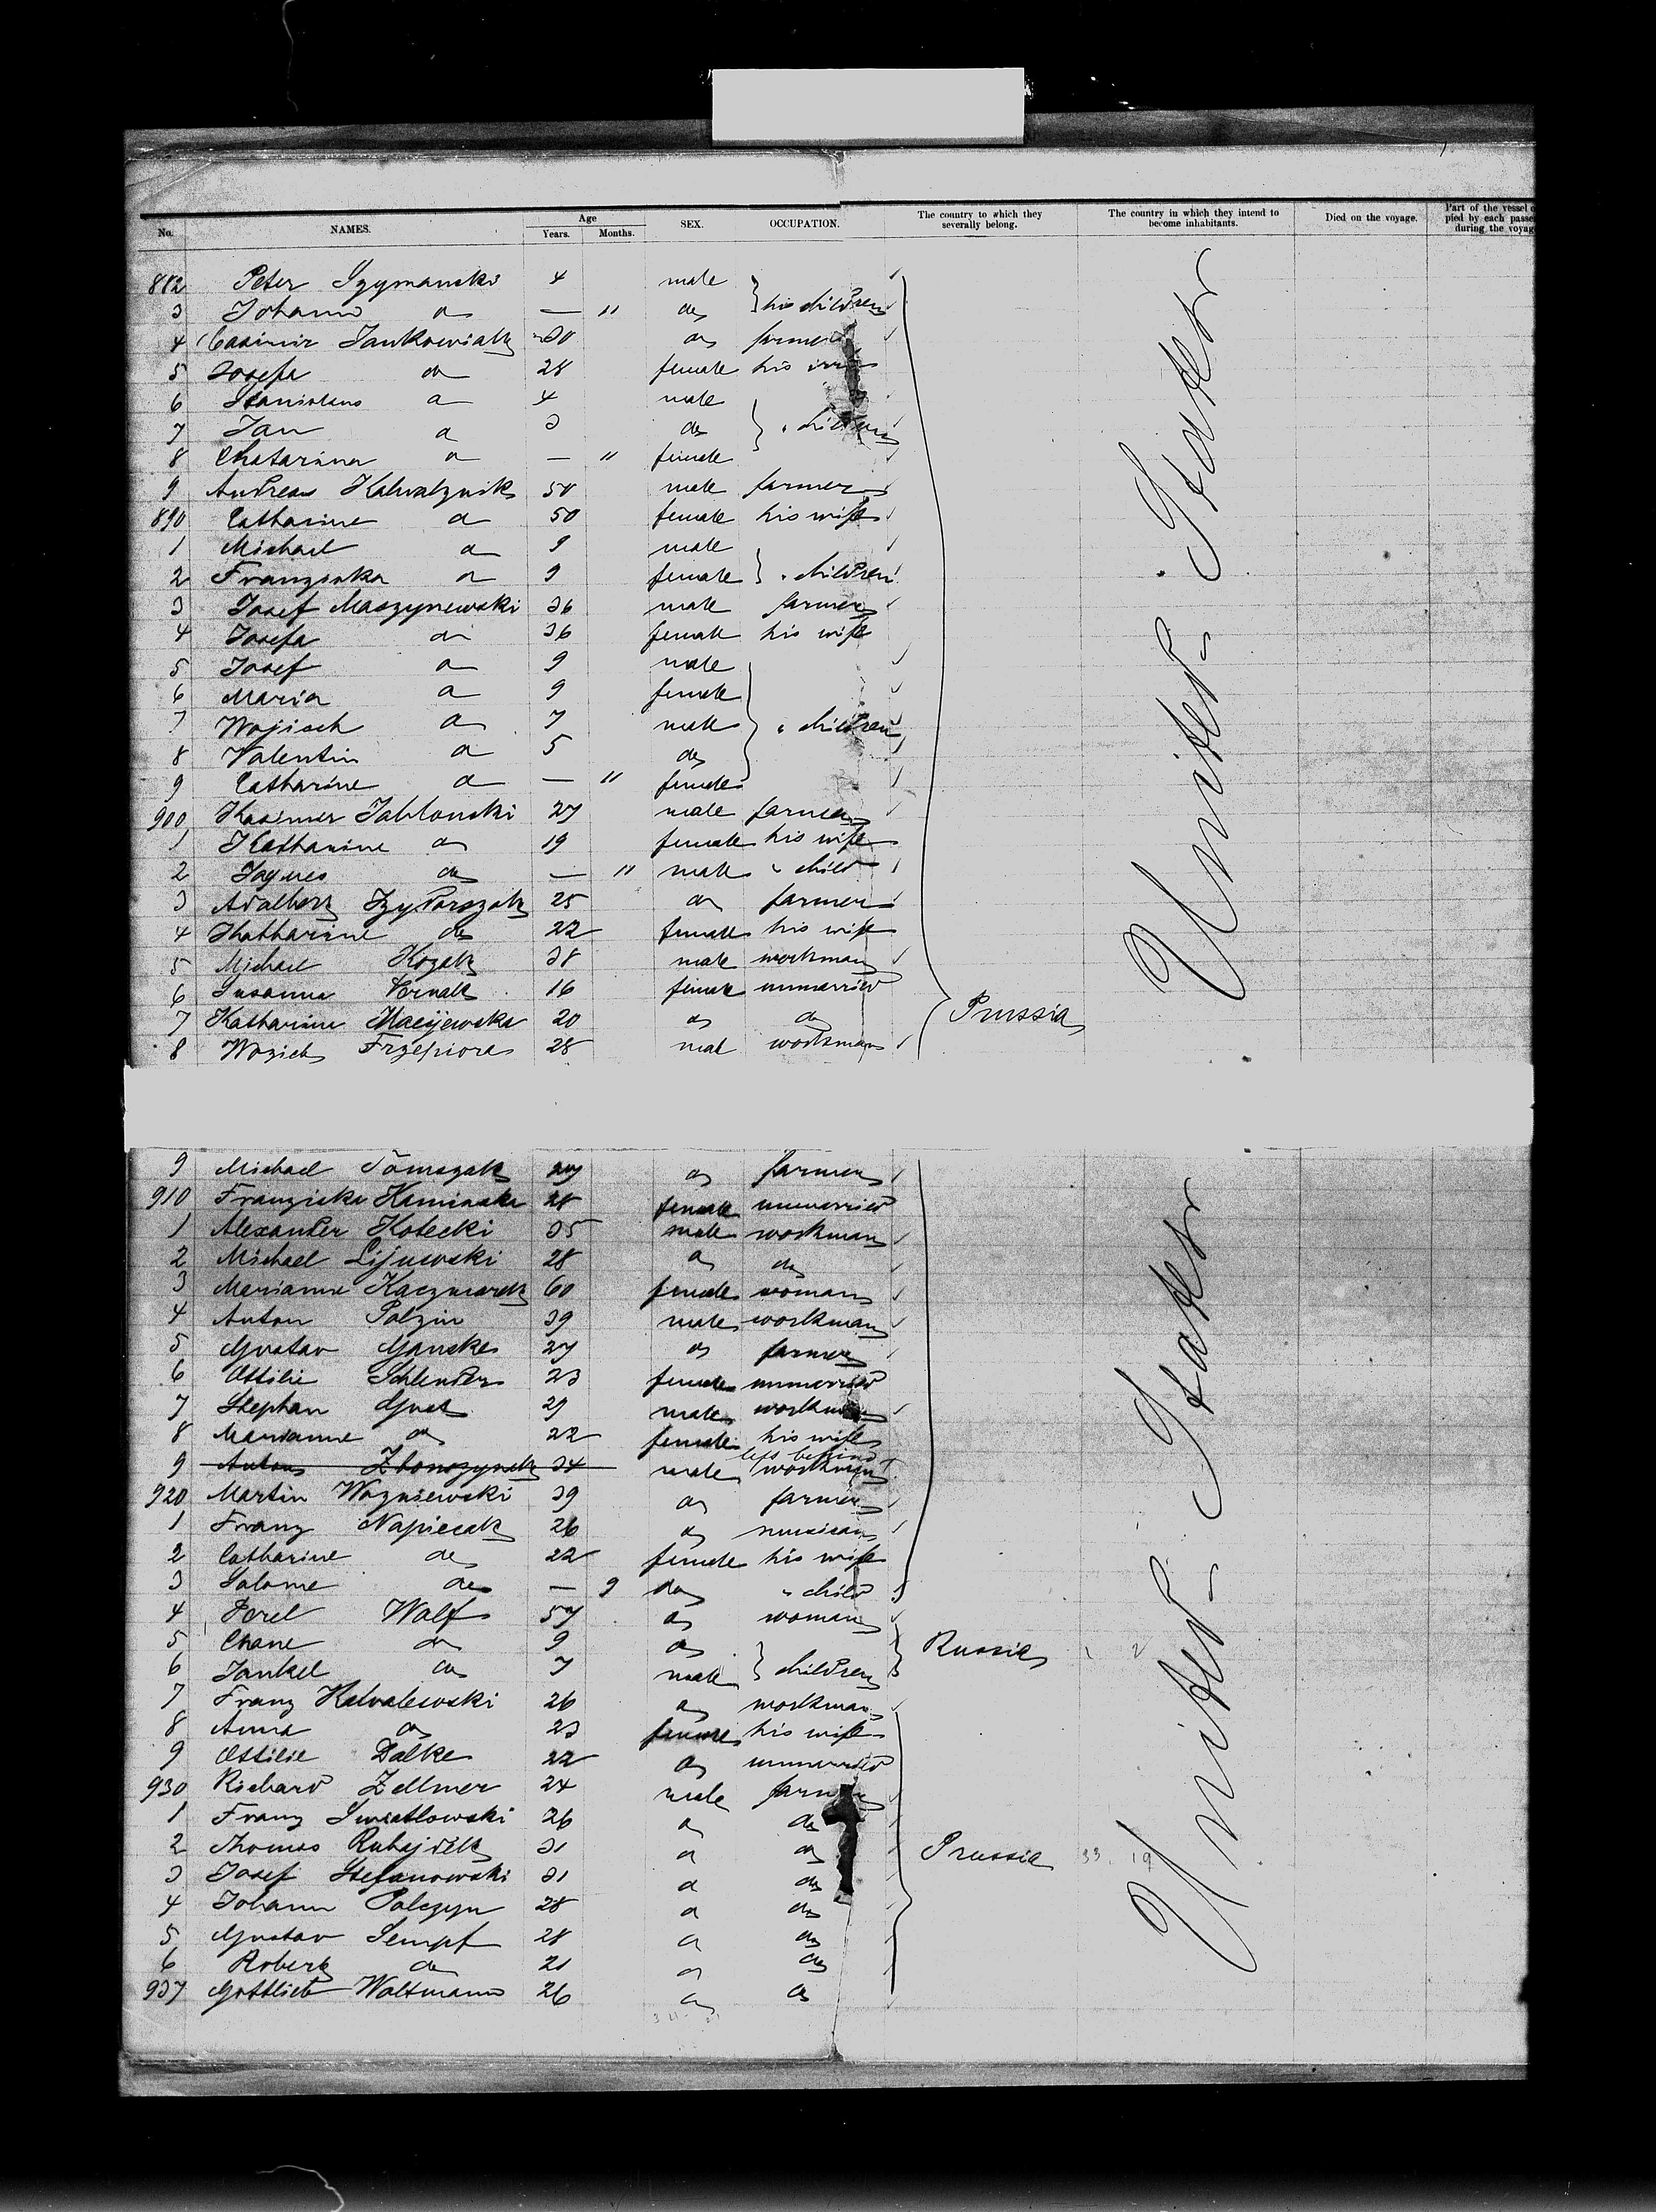 No. NAMES. Age Years. Months. SEX. OCCUPATION. The country to which they severally belong. The country in which they intend to become inhabitants. Died on the voyage. Part of the vessel pied by each passe during the voyag
882 Peter Szymanski 4 male
3 Johann do — 11 do } his children
4 Casimir Jankowiak 30 do farmer
5 Josefa do 28 female his
6 Stanislaus do 4 male
7 Jan do 3 do } " children
8 Chatarina do — 11 female
9 Andreas 50 male farmer
890 Catharine do 50 female his wife
1 Michael do 9 male
2 Franziska do 9 female } " children
3 Josef Maszynewski 36 male farmer
4 Josefa do 36 female his wife
5 Josef do 9 male
6 Maria do 9 female
7 Wojisch do 7 male } " children
8 Valentin do 5 do
9 Catharine do — 11 female
900 Kasimer Jablonski 27 male farmer
1 Katharine do 19 female his wife
2 do — 11 male " child
3 Adalbert 25 do farmer
4 Katharine do 22 female his wife
5 Michael Kozak 38 male workman
6 Susanna 16 female unmarried
7 Katharine Macijewska 20 do do Prussia
8 Wozich Frzepiora 28 male workman
9 Michael Tomszak 27 do farmer
910 Franziska Kaminska 28 female unmarried
1 Alexander Kotecki 35 male workman
2 Michael Lijewski 28 do do
3 Marianne Kaczmarek 60 female woman
4 Anton Polzin 39 male workman
5 Gustav Ganske 27 do farmer
6 Ottilie Schlender 23 female unmarried
7 Stephan 29 male workman
8 Marianne do 22 female his wife
left behind
9 Anton 34 male workman
920 Martin Wozniewski 39 do farmer
1 Franz Napierak 26 do musician
2 Catharine do 22 female his wife
3 Salome do — 9 do " child
4 Perel Wolf 57 do woman
5 Chane do 9 do Russia
6 Jankel do 7 male } children
7 Franz 26 do workman
8 Anna do 23 female his wife
9 Ottilie Dalke 22 do unmarried
930 Richard Zellmer 24 male farmer
1 Franz Swiatlowski 26 do do
2 Thomas 31 do do Prussia 33. 19
3 Josef Stefanowski 31 do do
4 Johann Palczyn 28 do do
5 Gustav Sempf 28 do do
6 Robert do 21 do do
937 Gottlieb Waltmann 26 do do
United States
United States